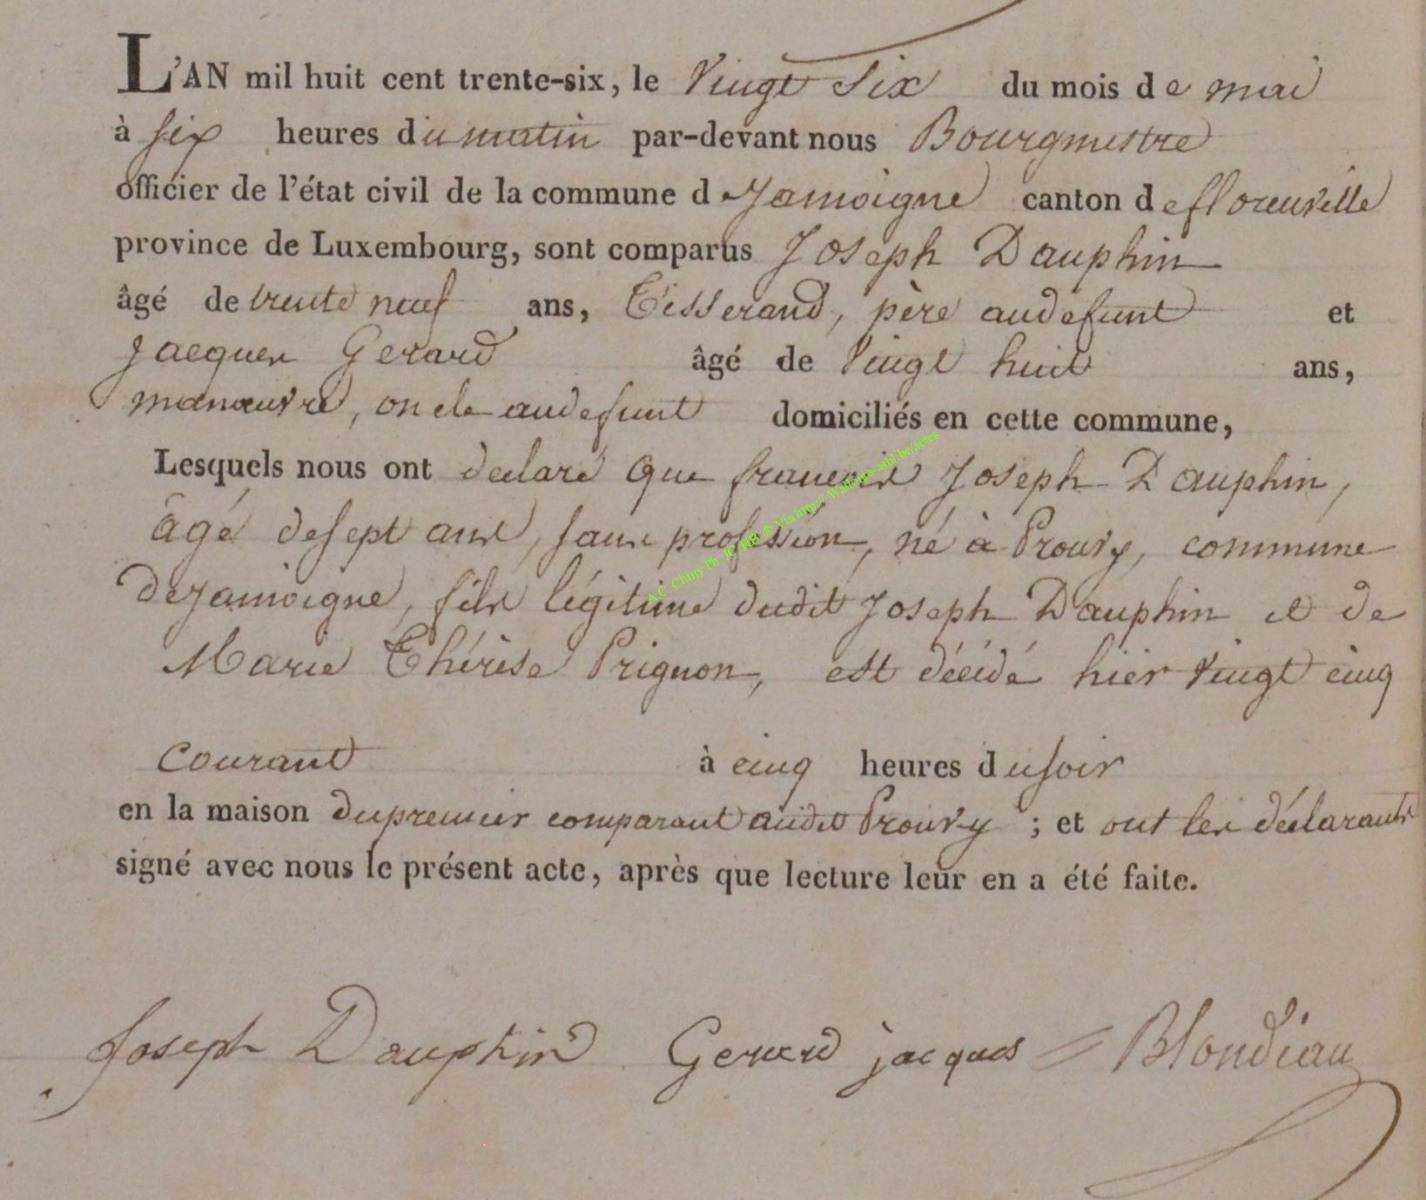 L'AN mil huit cent trente-six, le Vingt Six du mois de mai
à six heures du matin par-devant nous Bourgmestre
officier de l'état civil de la commune de Jamoigne canton de florenville
province de Luxembourg, sont comparus Joseph Dauphin
âgé de trente neuf ans, Tisserand, père au défunt et
Jacques Gerard âgé de vingt huit ans,
manœuvre, oncle au défunt domiciliés en cette commune,
Lesquels nous ont déclaré que françois Joseph Dauphin,
âgé de sept ans, sans profession, né à Prouvy, commune
de Jamoigne, fils légitime dudit Joseph Dauphin et de
Marie Thérèse Prignon, est décédé hier vingt cinq
courant à cinq heures du soir
en la maison du premier comparant audit Prouvy ; et ont les déclarants
signé avec nous le présent acte, après que lecture leur en a été faite.
Joseph Dauphin Gerard jacques Blondiau